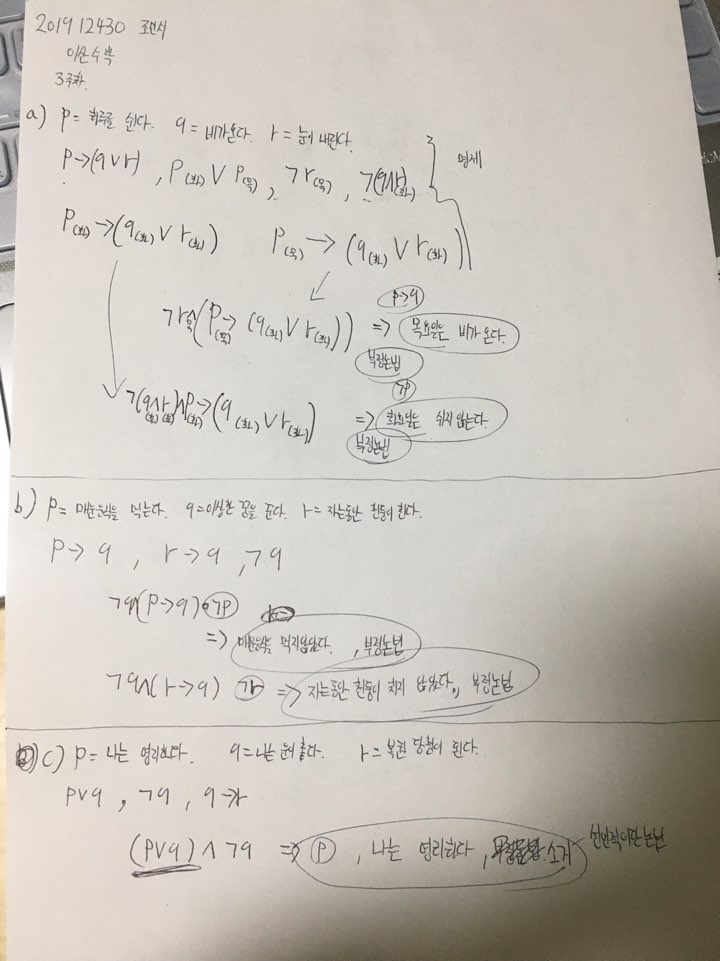 201912430 조민서
이산수학
3주차
a) p= 하루를 쉰다. q=비가온다. r=눈이 내린다.
p→(q∨r) , p(화)∨p(목) , ¬r(목) , ¬(q∧r)(화) 명제
p(화)→(q(화)∨r(화)) p(목)→(q(화)∨r(화))
p→q
¬r(목)∧(p(목)→(q(화)∨r(화))) => 목요일은 비가 온다.
부정논법
¬p
¬(q(화)∧r(화))∧p(화)→(q(화)∨r(화)) => 화요일은 쉬지 않는다.
부정논법
b) p= 매운음식을 먹는다. q=이상한 꿈을 꾼다. r=자는동안 천둥이 친다.
p→q , r→q , ¬q
¬q∧(p→q) ¬p
=> 매운음식을 먹지않았다. , 부정논법
¬q∧(r→q) ¬r => 자는동안 천둥이 치지 않았다., 부정논법
c) p=나는 영리하다. q=나는 운이 좋다. r=복권 당첨이 된다.
p∨q , ¬q , q→r
(p∨q)∧¬q => p , 나는 영리하다 , 소거 선언적삼단논법